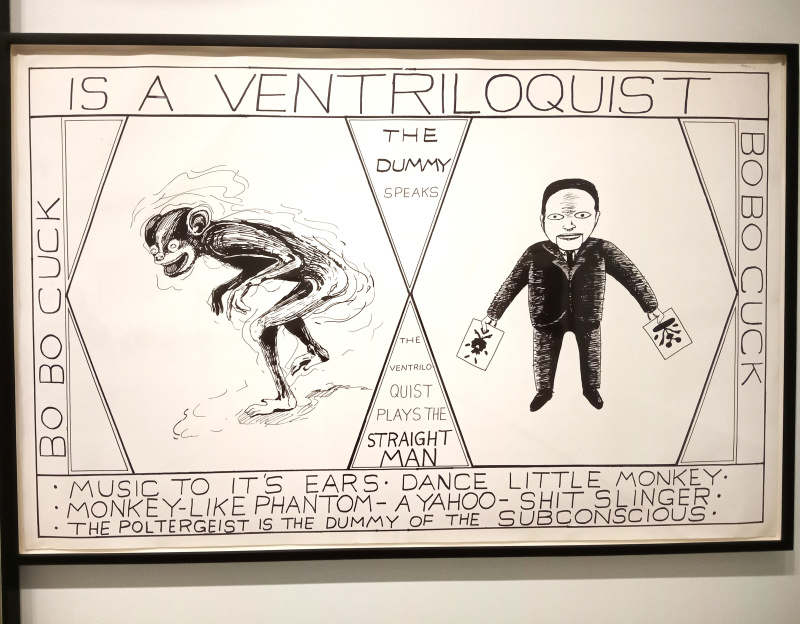 IS A VENTRILOQUIST
BO BO CUCK
THE
DUMMY
SPEAKS
THE
VENTRILO
QUIST
PLAYS THE
STRAIGHT
MAN
BOBO CUCK
· MUSIC TO IT'S EARS · DANCE LITTLE MONKEY ·
· MONKEY-LIKE PHANTOM - A YAHOO - SHIT SLINGER ·
· THE POLTERGEIST IS THE DUMMY OF THE SUBCONSCIOUS ·